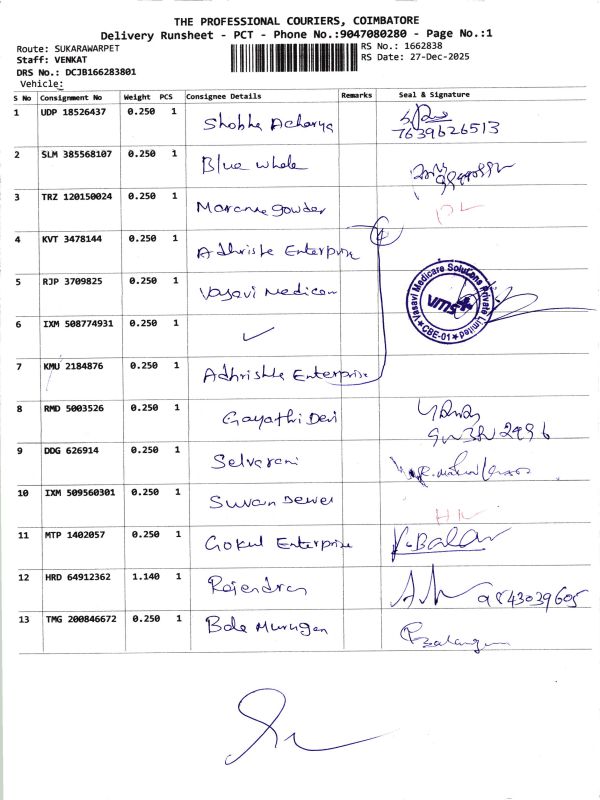 THE PROFESSIONAL COURIERS, COIMBATORE
Delivery Runsheet - PCT - Phone No.:9047080280 - Page No.:1
Route: SUKARAWARPET RS No.: 1662838
Staff: VENKAT RS Date: 27-Dec-2025
DRS No.: DCJB166283801
Vehicle:
S No Consignment No Weight PCS Consignee Details Remarks Seal & Signature
1 UDP 18526437 0.250 1 Shobha Acharya
7639626513
2 SLM 385568107 0.250 1 Blue Whale
3 TRZ 120150024 0.250 1 Gowder
4 KVT 3478144 0.250 1 Adhrishe Enterprise 4
5 RJP 3709825 0.250 1 Vasavi Medicare
Vasavi Medicare Solutions Private Limited
vms
★ CBE-01 ★
6 IXM 508774931 0.250 1 ✓
7 KMU 2184876 0.250 1 Adhrishe Enterprise
8 RMD 5003526 0.250 1 Gayathri Devi
9 DDG 626914 0.250 1 Selvarani
10 IXM 509560301 0.250 1 Suvan
11 MTP 1402057 0.250 1 Gokul Enterprise K-Balan
12 HRD 64912362 1.140 1 Rajendran 9843039605
13 TMG 200846672 0.250 1 Bala Murugan